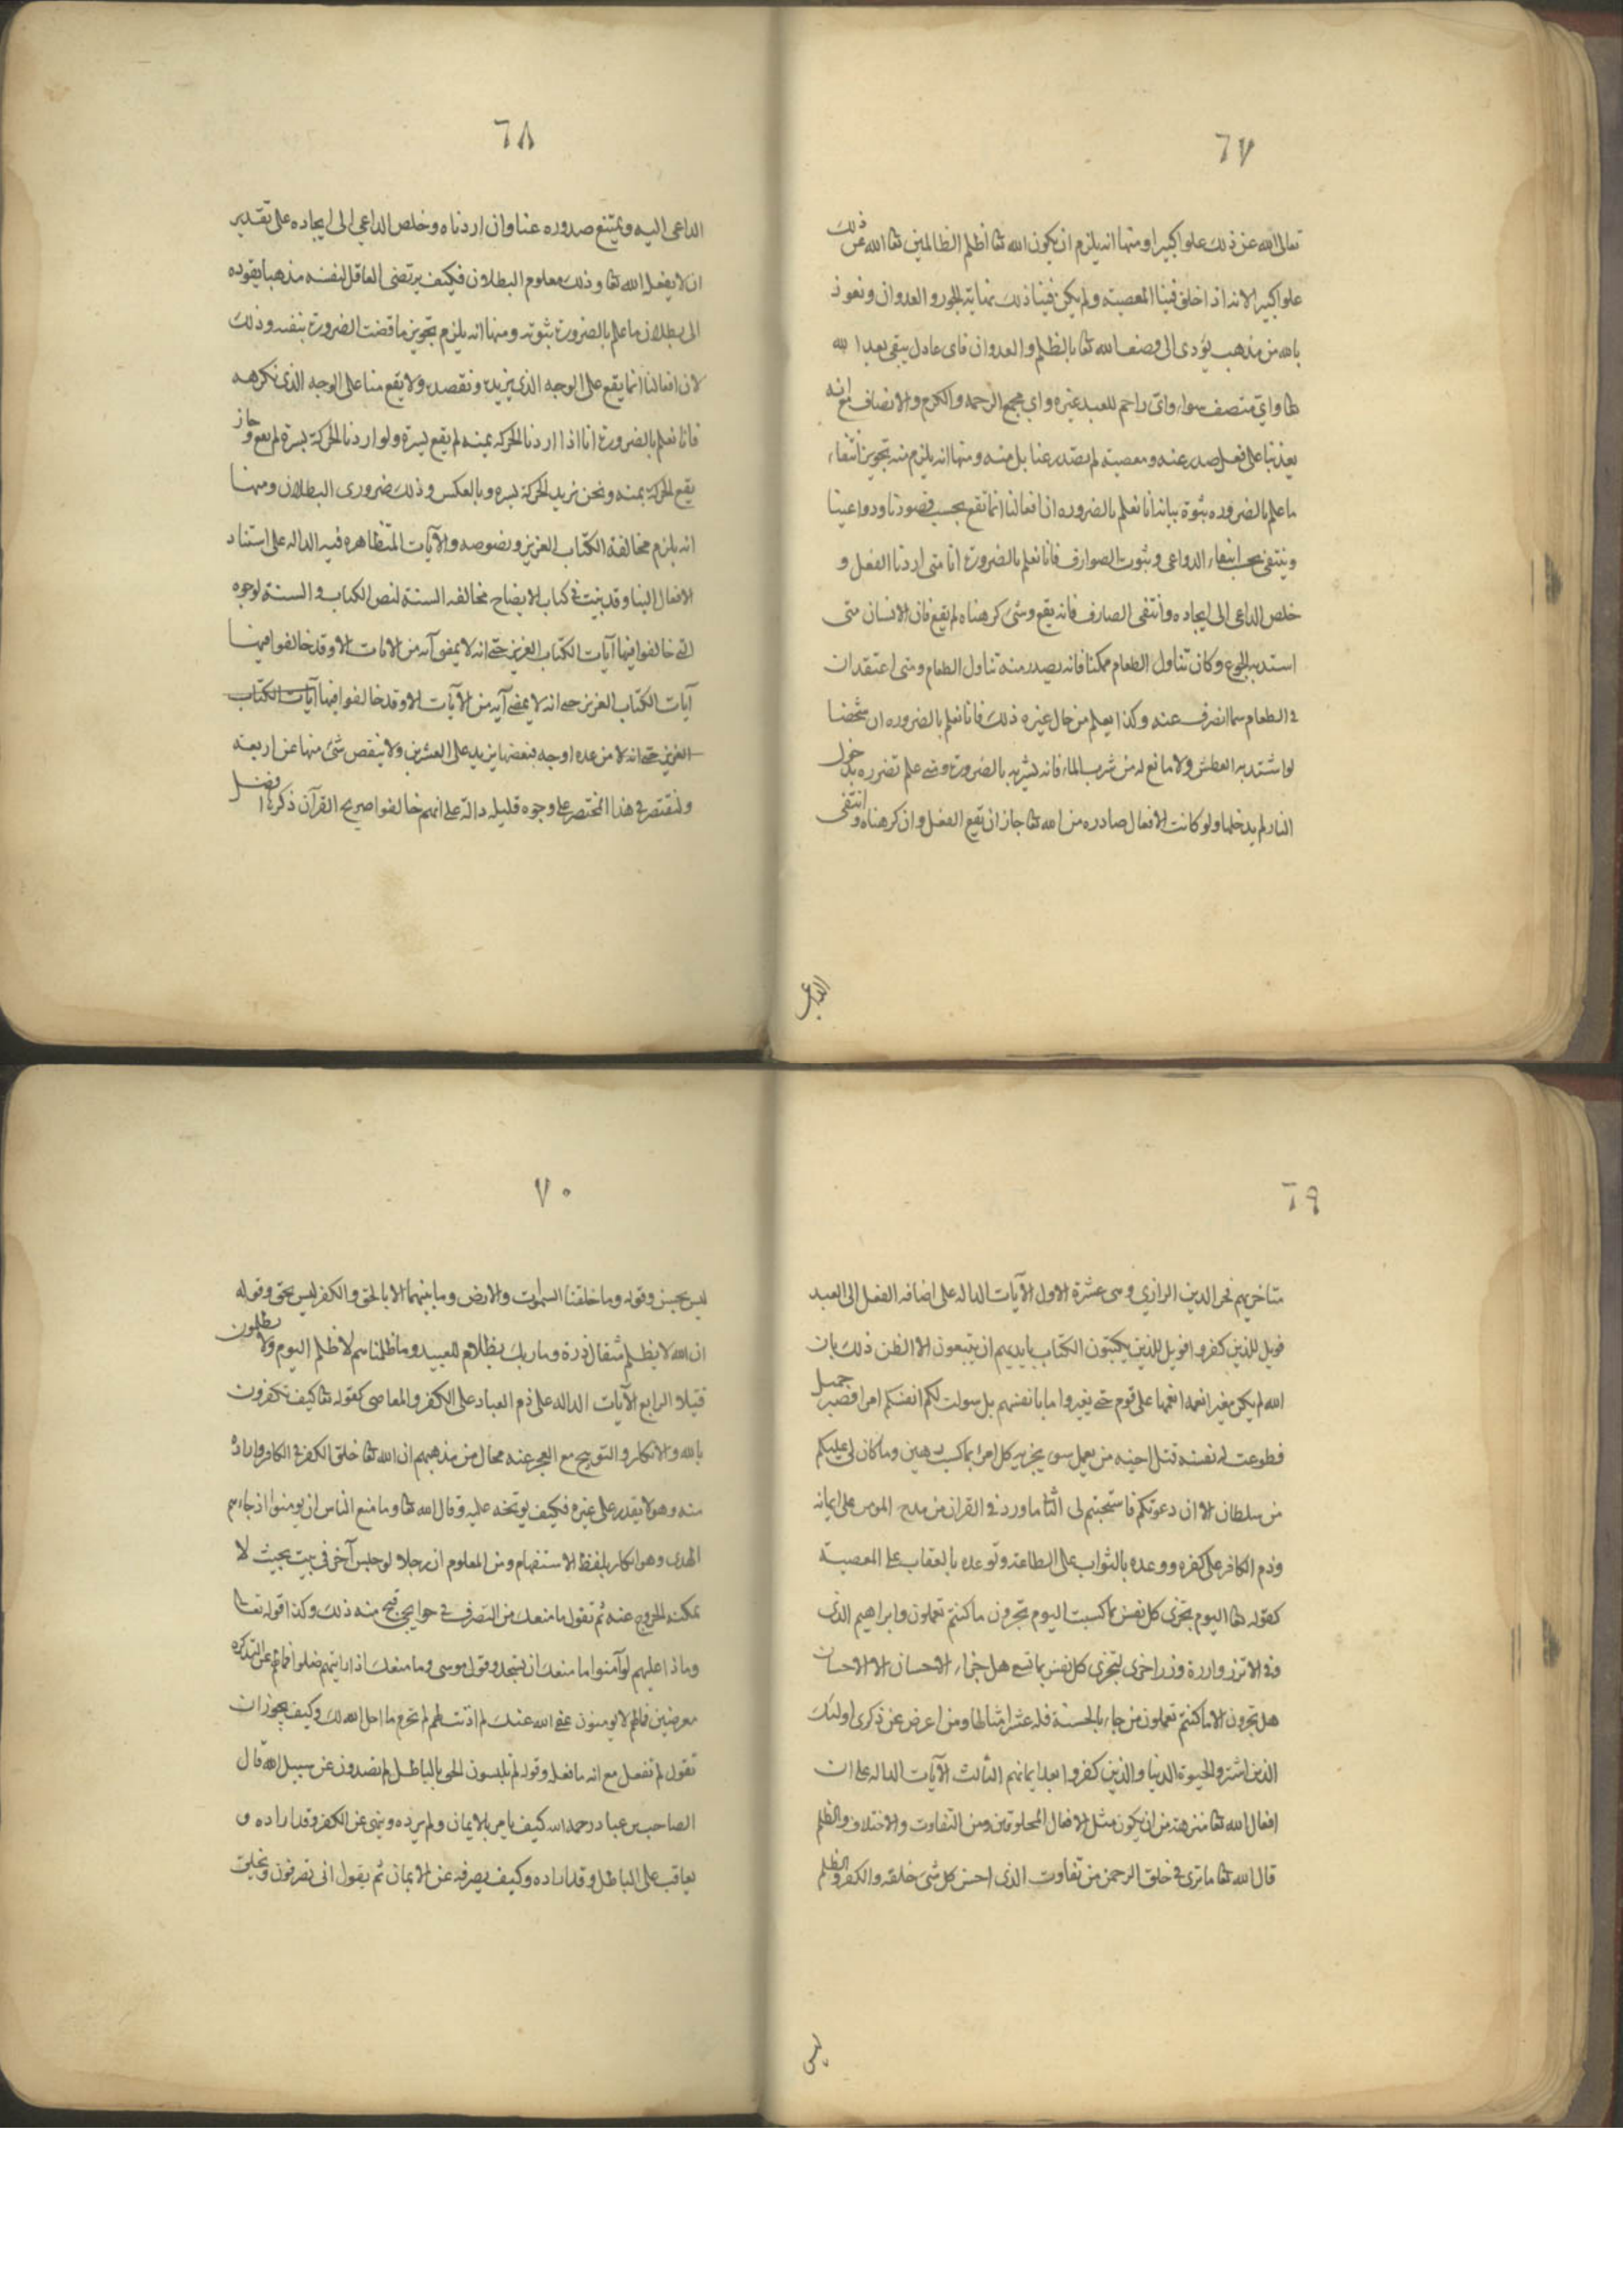 ٦٧
تعالى الله عن ذلك علوا كبيرا ومنها انه يلزم ان يكون الله تعا اظلم الظالمين تعا الله عن ذلك
علوا كبيرا لانه اذا خلق فينا المعصية ولم يكن فينا ذلك نهاية الجور والعدوان ونعوذ
بالله من مذهب يؤدى الى وصف الله تعا بالظلم والعدوان فاى عادل يبقى بعد الله
تعا واي منصف سواه واى راحم للعبد غيره واي مجمع الرحمه والكرم والانصاف مع انه
يعذبنا على فعل صدر عنه ومعصية لم تصدر عنا بل منه ومنها انه يلزم منه تجويز انتفاء
ما علم بالضروره ثبوته بيانه انا نعلم بالضروره ان افعالنا انما تقع بحسب قصودنا ودواعينا
وينتفى بحسب انتفاء الدواعى وثبوت الصوارف فانا نعلم بالضرورة انا متى اردنا الفعل و
خلص الداعى الى ايجاده وانتفى الصارف فانه يقع وشئ كرهناه لم يقع فان الانسان متى
استد به الجوع وكان تناول الطعام ممكنا فانه يصدر منه تناول الطعام ومتى اعتقد ان
فى الطعام سما انصرف عنه وكذا يعلم من حال غيره ذلك فانا نعلم بالضروره ان شخصا
لو اشتد به العطش ولا مانع له من شرب الماء فانه يشربه بالضرورة ومتى علم تضرره بدخول
النار لم يدخلها ولو كانت الافعال صادره من الله تعا جاز ان تقع الفعل وان كرهناه وانتفى
الداعى
٦٨
الداعى اليه ويمتنع صدوره عنا وان اردناه وخلص الداعى الى ايجاده على تقدير
ان لا يفعل الله تعا وذلك معلوم البطلان فكيف يرتضى العاقل لنفسه مذهبا يقوده
الى بطلان ما علم بالضرورة ثبوته ومنها انه يلزم تجويز ما قضت الضرورة بنفيه وذلك
لان افعالنا انما يقع على الوجه الذى نريده ونقصده ولا يقع منا على الوجه الذى نكرهه
فانا نعلم بالضرورة انا اذا اردنا الحركه يمنه لم يقع يسرة ولو اردنا الحركة يسرة لم يقع وجاز
يقع الحركة يمنه ونحن نريد الحركة يسره وبالعكس وذلك ضرورى البطلان ومنها
انه يلزم مخالفة الكتاب العزيز ونصوصه والآيات المتظاهره فيه الداله على استناد
الافعال الينا وقد بينت فى كتاب الايضاح مخالفه السنة لنص الكتاب والسنة لوجوه
التى خالفوا فيها آيات الكتاب العزيز حتى انه لا يمضى آيه من الآيات الا وقد خالفوا فيها
آيات الكتاب العزيز حتى انه لا يمضى آيه من الآيات الا وقد خالفوا فيها آيات الكتاب
العزيز حتى انه لا من عده اوجه فبعضها يزيد على العشرين ولا ينقص شئ منها عن اربعة
ولنقتصر فى هذا المختصر على وجوه قليله دالة على انهم خالفوا صريح القرآن ذكرها افضل
٦٩
متاخريهم فخر الدين الرازي وهى عشرة الاول الآيات الداله على اضافه الفعل الى العبد
فويل للذين كفروا فويل للذين يكتبون الكتاب بايديهم ان يتبعون الا الظن ذلك بان
الله لم يكن مغيرا نعمة انعمها على قوم حتى يغيروا ما بانفسهم بل سولت لكم انفسكم امرا فصبر جميل
فطوعت له نفسه قتل اخيه من يعمل سوء يجز به كل امرئ بما كسب رهين وما كان لى عليكم
من سلطان الا ان دعوتكم فاستجبتم لى الثا ما ورد فى القران من مدح المومن على ايمانه
وذم الكافر على كفره ووعده بالثواب على الطاعة وتوعده بالعقاب على المعصية
كقوله تعا اليوم تجزى كل نفس بما كسبت اليوم تجزون ما كنتم تعملون وابراهيم الذى
وفى الا تزر وازرة وزر اخرى لتجزى كل نفس بما تسعى هل جزاء الاحسان الا الاحسان
هل تجزون الا ما كنتم تعملون من جاء بالحسنة فله عشر امثالها ومن اعرض عن ذكرى اولئك
الذين اشتروا الحيوة الدنيا والذين كفروا بعد ايمانهم الثالث الآيات الداله على ان
افعال الله تعا منزهة من ان يكون مثل الافعال المخلوقين ومن التفاوت والاختلاف والظلم
قال الله تعا ما ترى فى خلق الرحمن من تفاوت الذى احسن كل شئ خلقه والكفر والظلم
ليس
٧٠
ليس بحسن وقوله وما خلقنا السموات والارض وما بينهما الا بالحق والكفر ليس بحق وقوله
ان الله لا يظلم مثقال ذرة وما ربك بظلام للعبيد وما ظلمناهم لا ظلم اليوم ولا يظلمون
فتيلا الرابع الآيات الداله على ذم العباد على الكفر والمعاصى كقوله تعا كيف تكفرون
بالله والانكار والتوبيخ مع العجز عنه محال من مذهبهم ان الله تعا خلق الكفر فى الكافر واراده
منه وهو لا يقدر على غيره فكيف يوبخه عليه وقال الله تعا وما منع الناس ان يومنوا اذ جاءهم
الهدى وهو انكار بلفظ الاستفهام ومن المعلوم ان رجلا لو حبس آخر فى بيت بحيث لا
يمكنه الخروج عنه ثم تقول ما منعك من التصرف فى حوايجى قبح منه ذلك وكذا قوله تعا
وماذا عليهم لو آمنوا ما منعك ان تسجد وقول موسى وما منعك اذ رايتهم ضلوا فما لهم عن التذكره
معرضين فما لهم لا يومنون عفى الله عنك لم اذنت لهم لم تحرم ما احل الله لك وكيف يجوز ان
تقول لم تفعل مع انه ما فعله وقوله لم تلبسون الحق بالباطل لم تصدون عن سبيل الله قال
الصاحب بن عباد رحمه الله كيف يامر بالايمان ولم يرده وينهى عن الكفر وقد اراده و
يعاقب على الباطل وقد اراده وكيف يصرفه عن الايمان ثم يقول انى تصرفون ويخلق